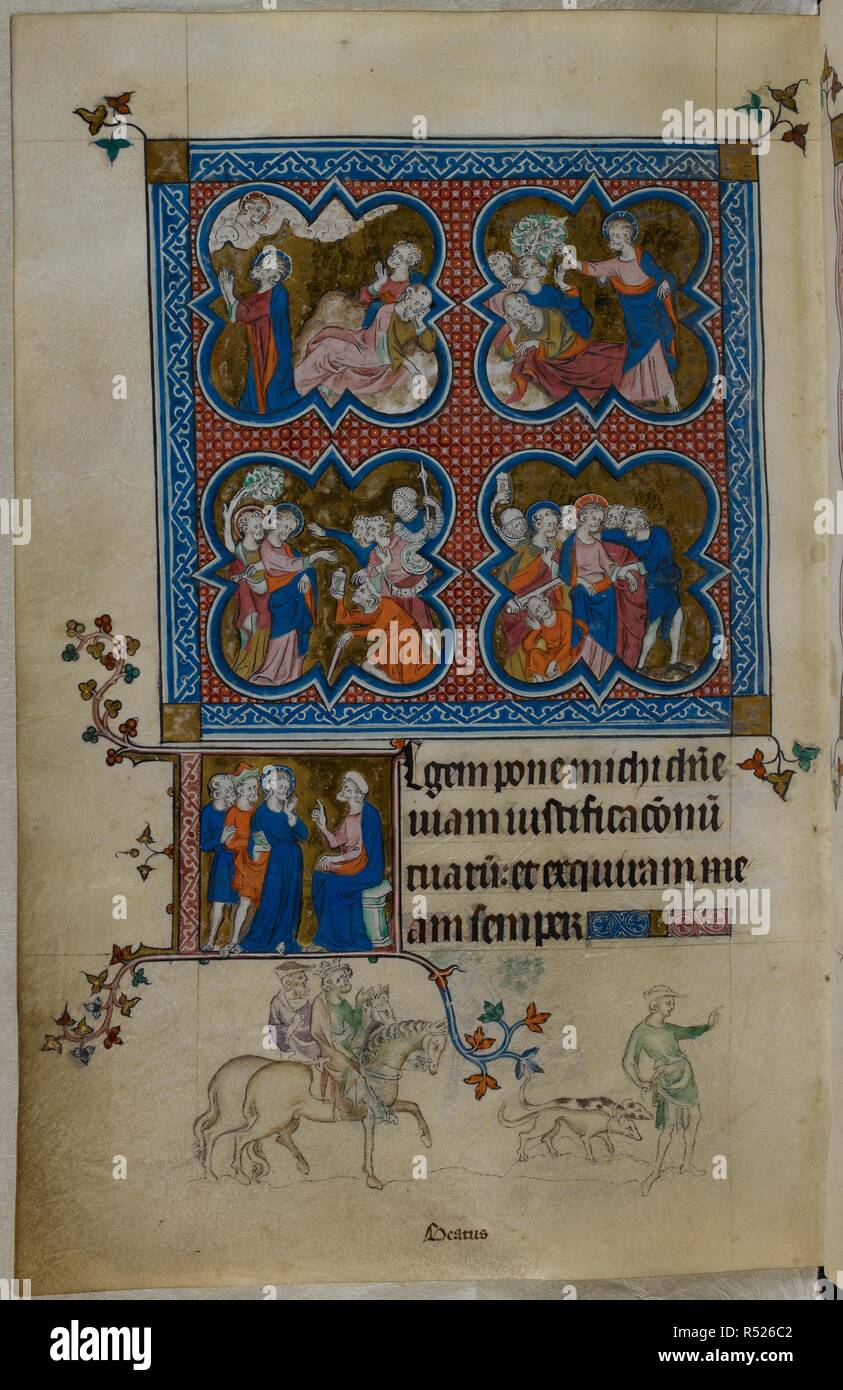 LEgem pone michi dn̄e
uiam iustificacōnū
tuarū: et exquiram me
am semper
Beatus
alamy
Image ID: R526C2
www.alamy.com